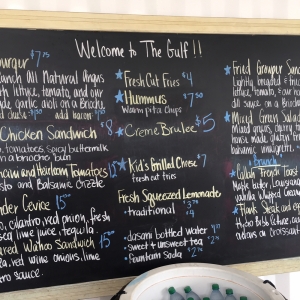 Welcome to The Gulf!!
urger $7.75
Ranch All Natural Angus
lettuce, tomato, and our
made garlic aioli on a Brioche
add bacon
Chicken Sandwich $8
tomatoes, spicy buttermilk
on a brioche bun
and Heirloom Tomatoes 12
and Balsamic drizzle
Cevice 15
cilantro, red onion, fresh
lime juice, tequila
Wahoo Sandwich 15
red wine onions, lime
sauce.
Fresh Cut Fries $4
Hummus $7.50
Warm Pita Chips
Creme Brulee $5
Kid's Grilled Cheese $7
fresh cut fries
Fresh Squeezed Lemonade
-traditional
-dasani bottled water
-sweet + unsweet tea $2
-fountain soda $2
Fried Grouper Sand
Lightly breaded & fried
lettuce, tomato, & our ho
dill sauce on a Brioche
Mixed Green Salad
mixed greens, cherry
house made
balsamic vinaigrette.
Brunch
Challah French Toast
Maple butter, Louisiana
vanilla whipped cream
Flank Steak and
adams on croissant